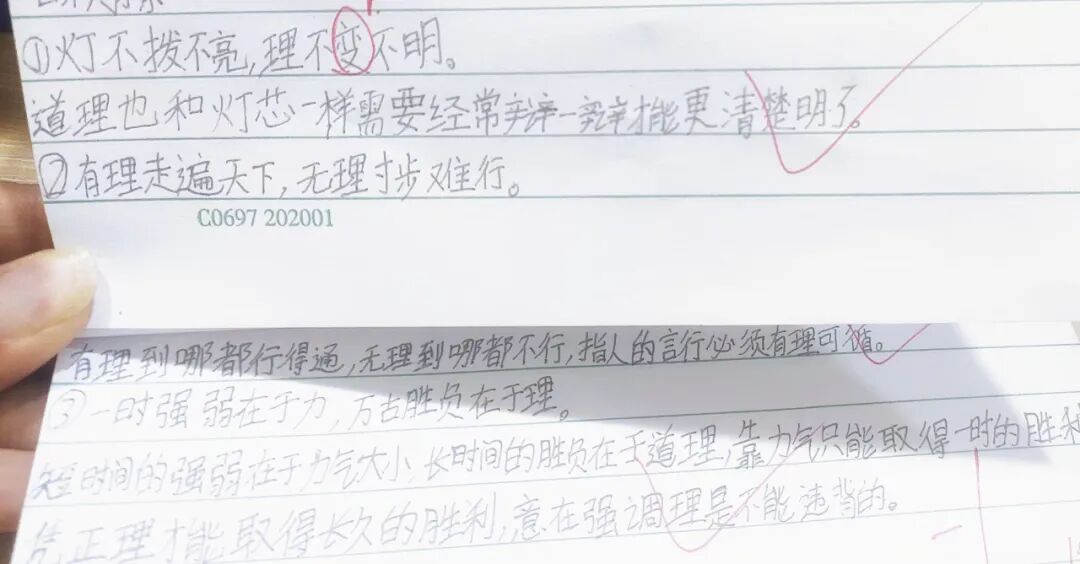 ①灯不拨不亮,理不变不明。
道理也和灯芯一样需要经常辩一辩才能更清楚明了。
②有理走遍天下,无理寸步难行。
C0697 202001
有理到哪都行得通,无理到哪都不行,指人的言行必须有理可循。
③一时强弱在于力,万古胜负在于理。
短时间的强弱在于力气大小,长时间的胜负在于道理,靠力气只能取得一时的胜利
凭正理才能取得长久的胜利,意在强调理是不能违背的。